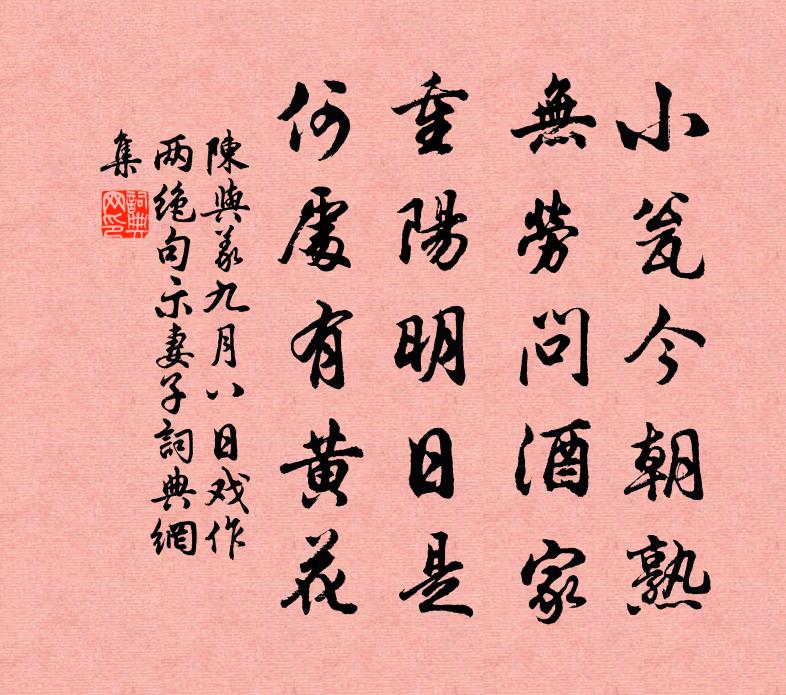 小瓮今朝熟
無勞問酒家
重陽明日是
何處有黄花
陳與義九月八日戏作
两绝句示妻子詞典網
集
詞典
网印